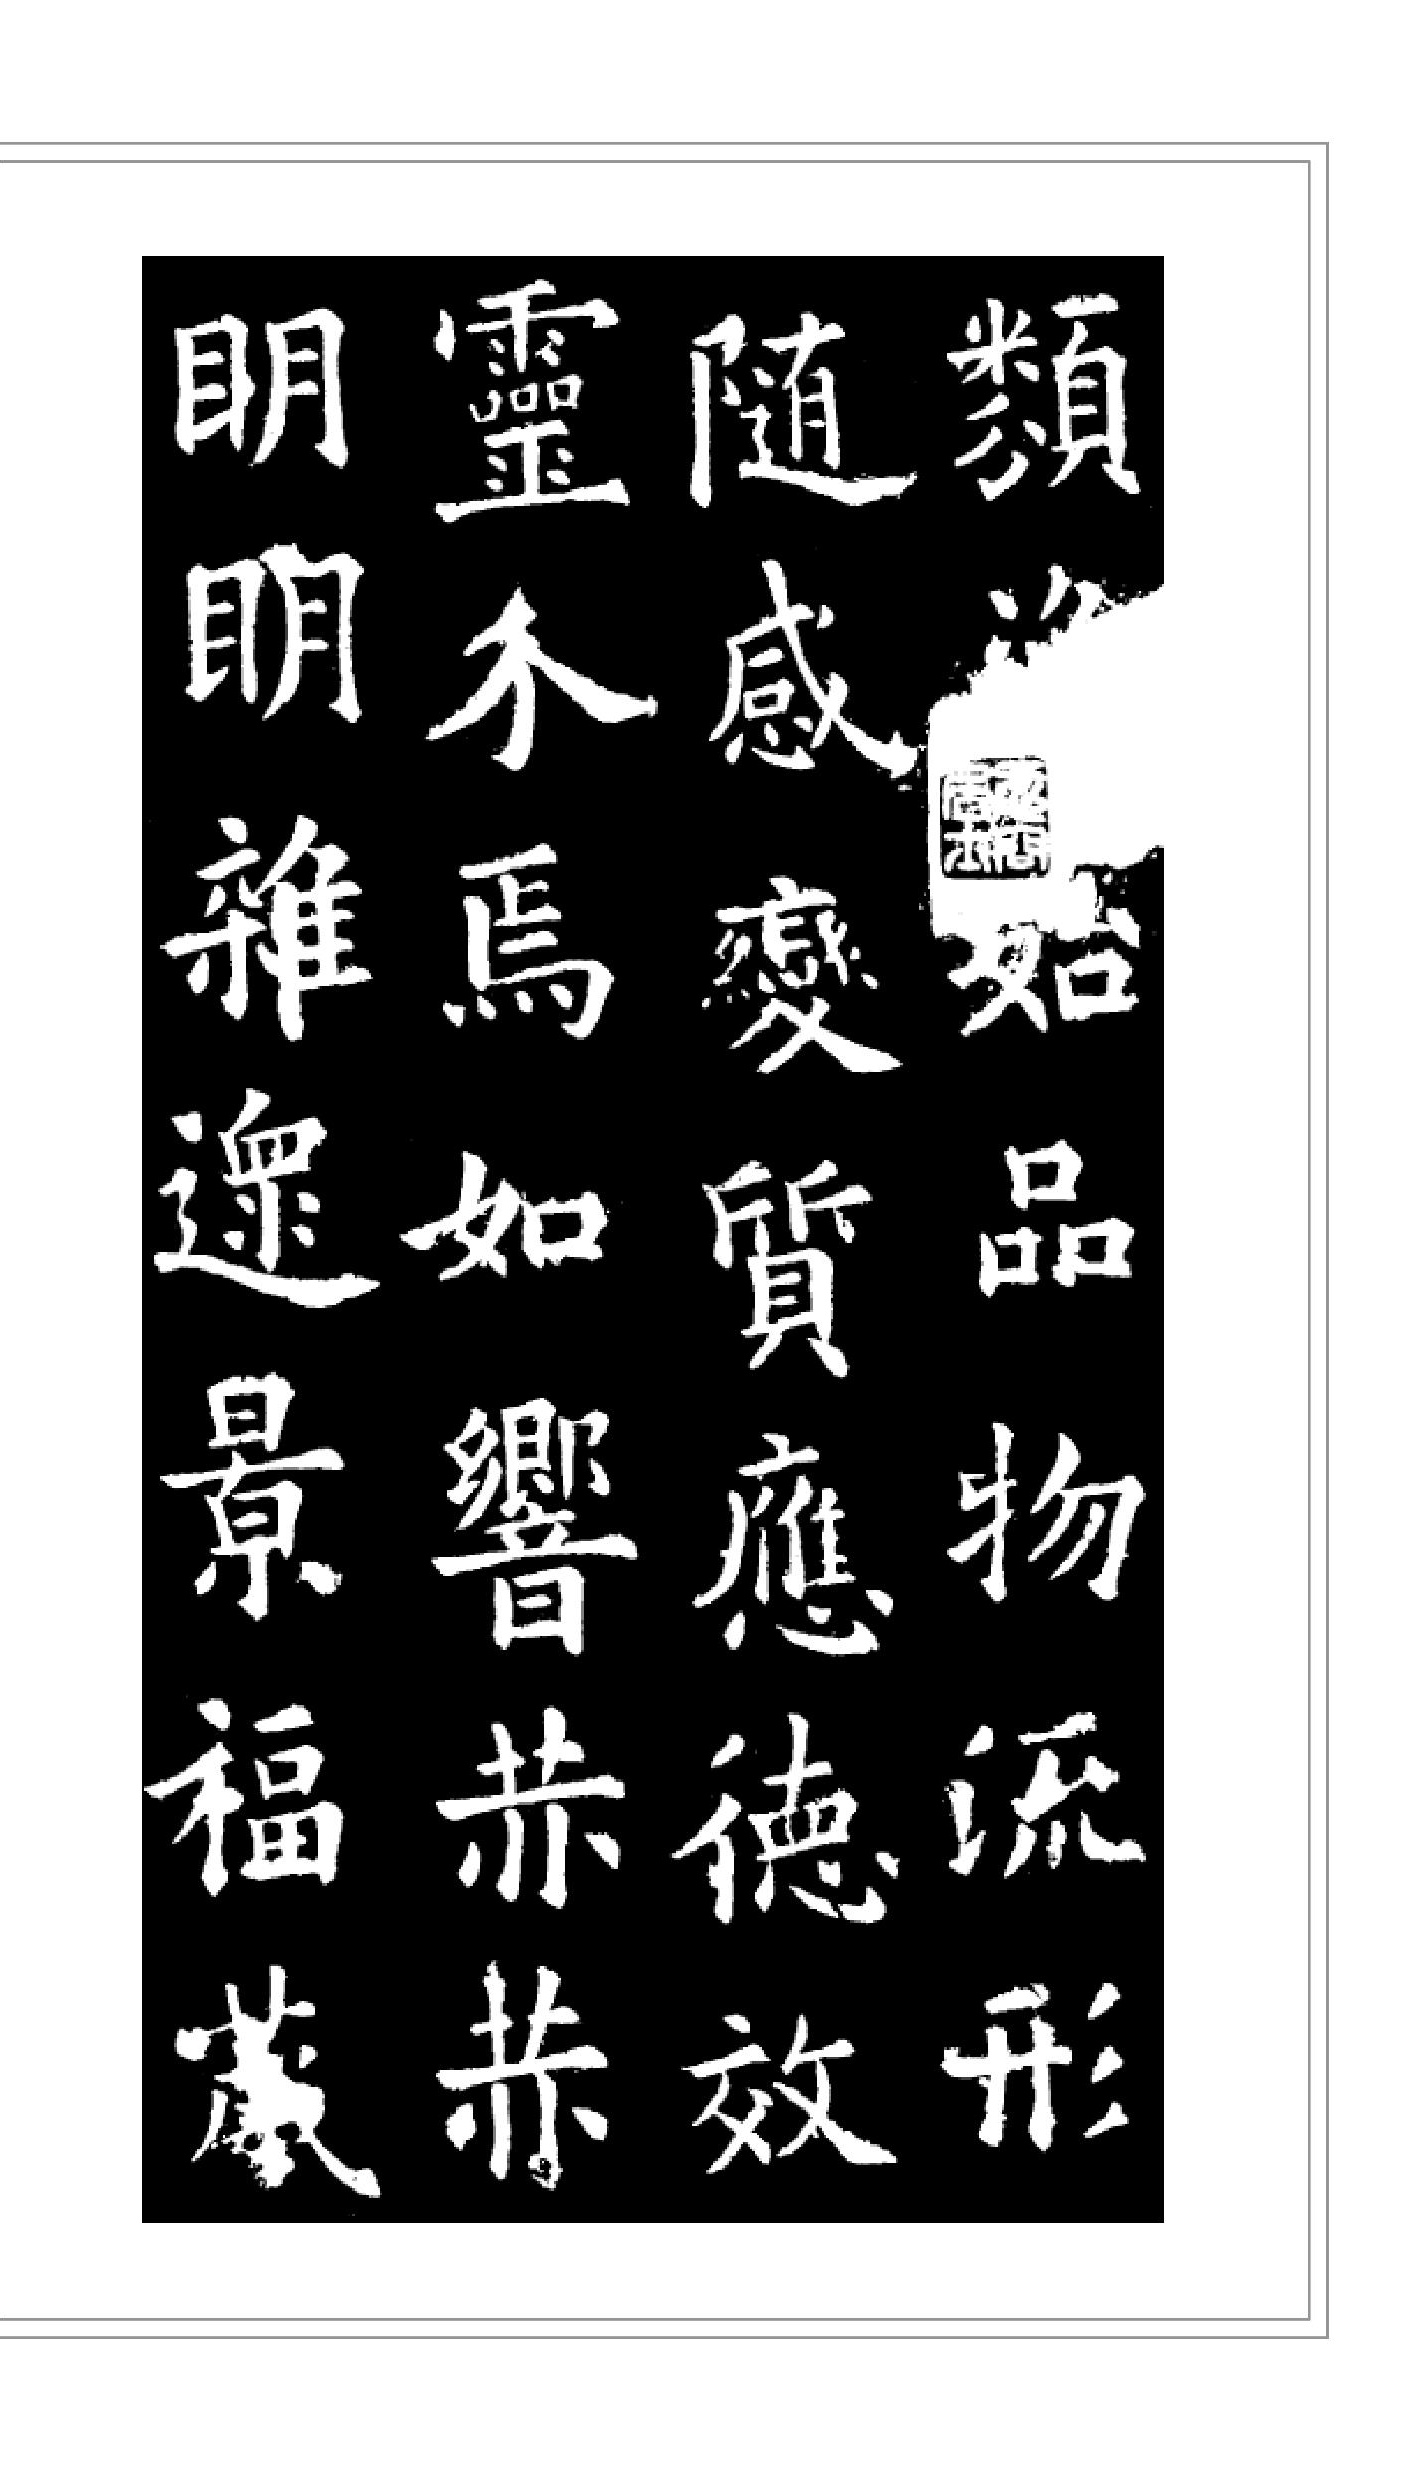 類始品物流形
随感變質應德效
靈介焉如響赫赫
眀眀雜遝景福葳